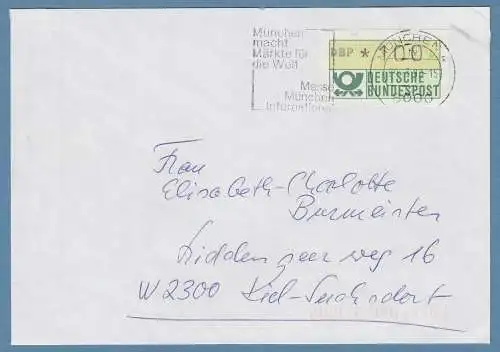 München
macht
Märkte für
die Welt
Messe
München
International
DBP *
DEUTSCHE
BUNDESPOST
MÜNCHEN
8000
Frau
Elisabeth-Charlotte
Burmeister
weg 16
W 2300 Kiel-Suchsdorf